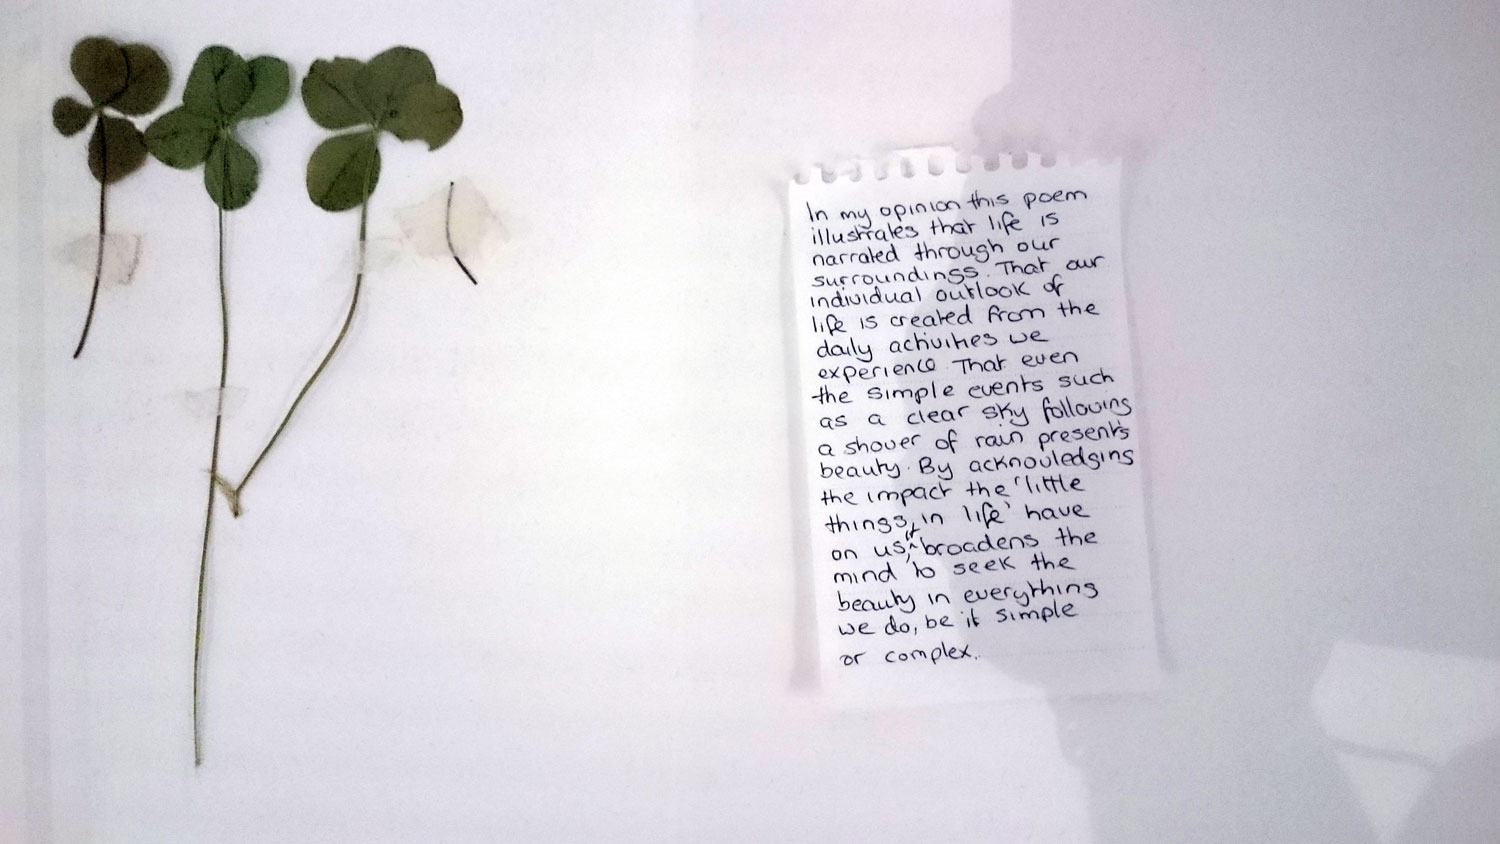 In my opinion this poem
illustrates that life is
narrated through our
surroundings. That our
individual outlook of
life is created from the
daily activities we
experience. That even
the simple events such
as a clear sky following
a shower of rain presents
beauty. By acknowledging
the impact the 'little
things in life' have
on us, it broadens the
mind to seek the
beauty in everything
we do, be it simple
or complex.